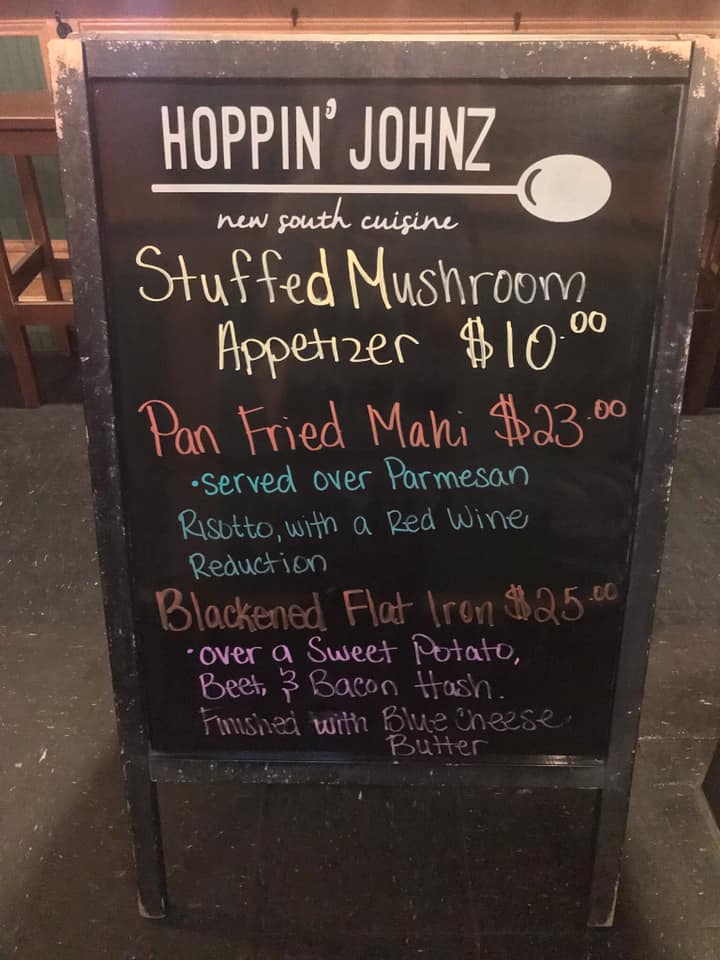 HOPPIN' JOHNZ
new south cuisine
Stuffed Mushroom
Appetizer $10.00
Pan Fried Mahi $23.00
•served over Parmesan
Risotto, with a Red Wine
Reduction
Blackened Flat Iron $25.00
•over a Sweet Potato,
Beet, & Bacon Hash.
Finished with Blue Cheese
Butter